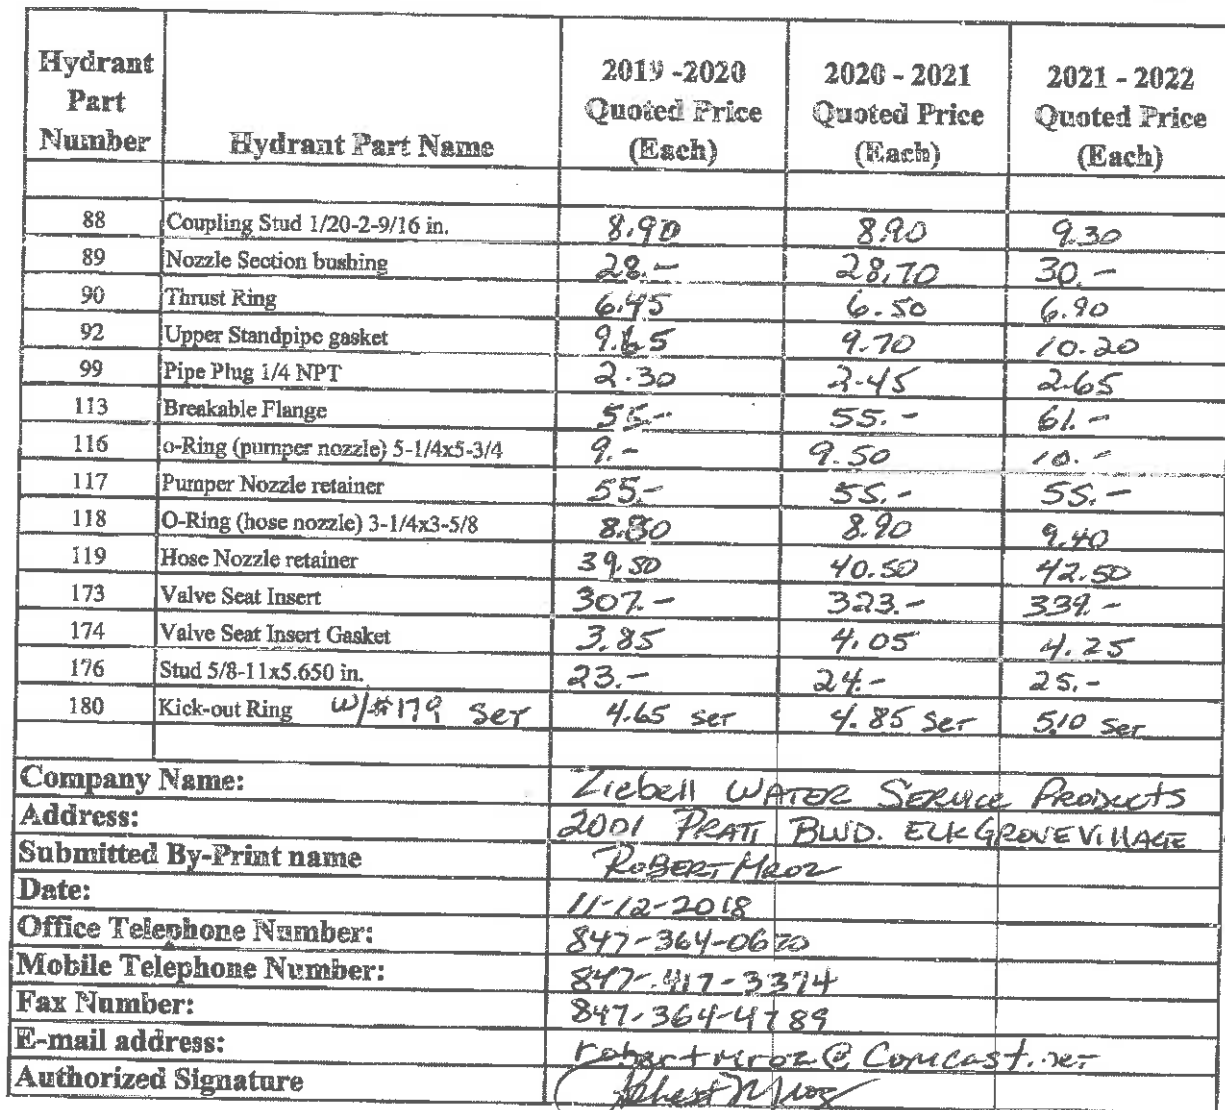 Hydrant Part Number | Hydrant Part Name | 2019 -2020 Quoted Price (Each) | 2020 - 2021 Quoted Price (Each) | 2021 - 2022 Quoted Price (Each)
88 Coupling Stud 1/20-2-9/16 in. 8.90 8.90 9.30
89 Nozzle Section bushing 28.- 28.70 30.-
90 Thrust Ring 6.45 6.50 6.90
92 Upper Standpipe gasket 9.65 9.70 10.20
99 Pipe Plug 1/4 NPT 2.30 2.45 2.65
113 Breakable Flange 55.- 55.- 61.-
116 o-Ring (pumper nozzle) 5-1/4x5-3/4 9.- 9.50 10.-
117 Pumper Nozzle retainer 55.- 55.- 55.-
118 O-Ring (hose nozzle) 3-1/4x3-5/8 8.90 9.40
119 Hose Nozzle retainer 39.50 40.50 42.50
173 Valve Seat Insert 307.- 323.- 339.-
174 Valve Seat Insert Gasket 3.85 4.05 4.25
176 Stud 5/8-11x5.650 in. 23.- 24.- 25.-
180 Kick-out Ring W/#179 SET 4.65 SET 4.85 SET 5.10 SET
Company Name: Ziebell WATER SERVICE PRODUCTS
Address: 2001 PRATT BLVD. ELK GROVE VILLAGE
Submitted By-Print name ROBERT MROZ
Date: 11-12-2018
Office Telephone Number: 847-364-0670
Mobile Telephone Number: 847-417-3374
Fax Number: 847-364-4789
E-mail address: robertmroz@comcast.net
Authorized Signature Robert Mroz